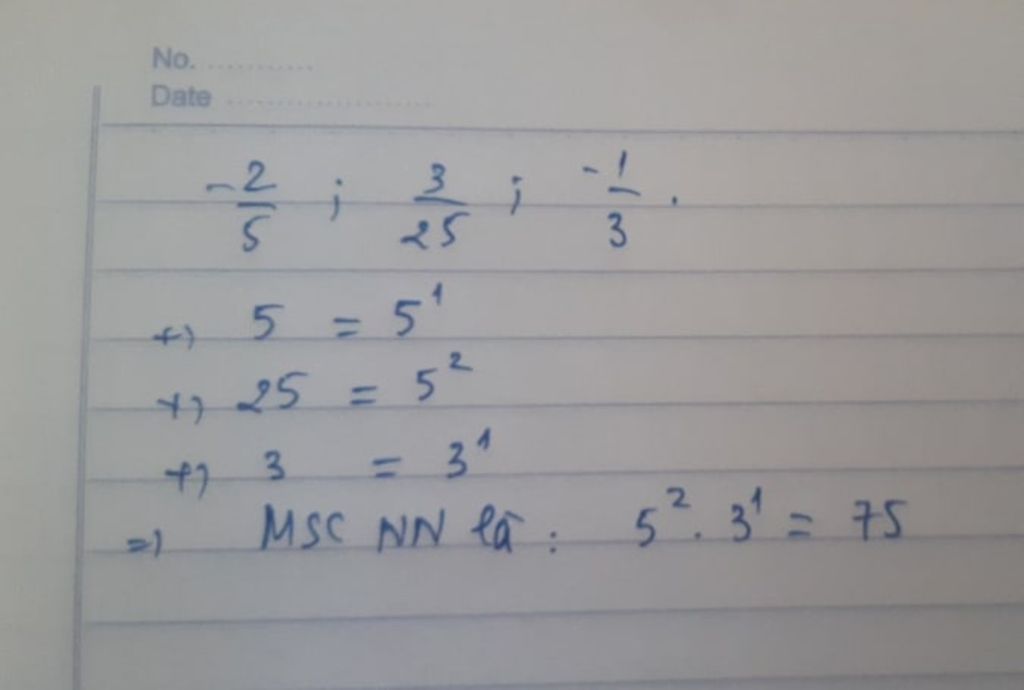 No. ............
Date ......................
-2/5 ; 3/25 ; -1/3 .
+) 5 = 5¹
+) 25 = 5²
+) 3 = 3¹
=) MSC NN là : 5² . 3¹ = 75